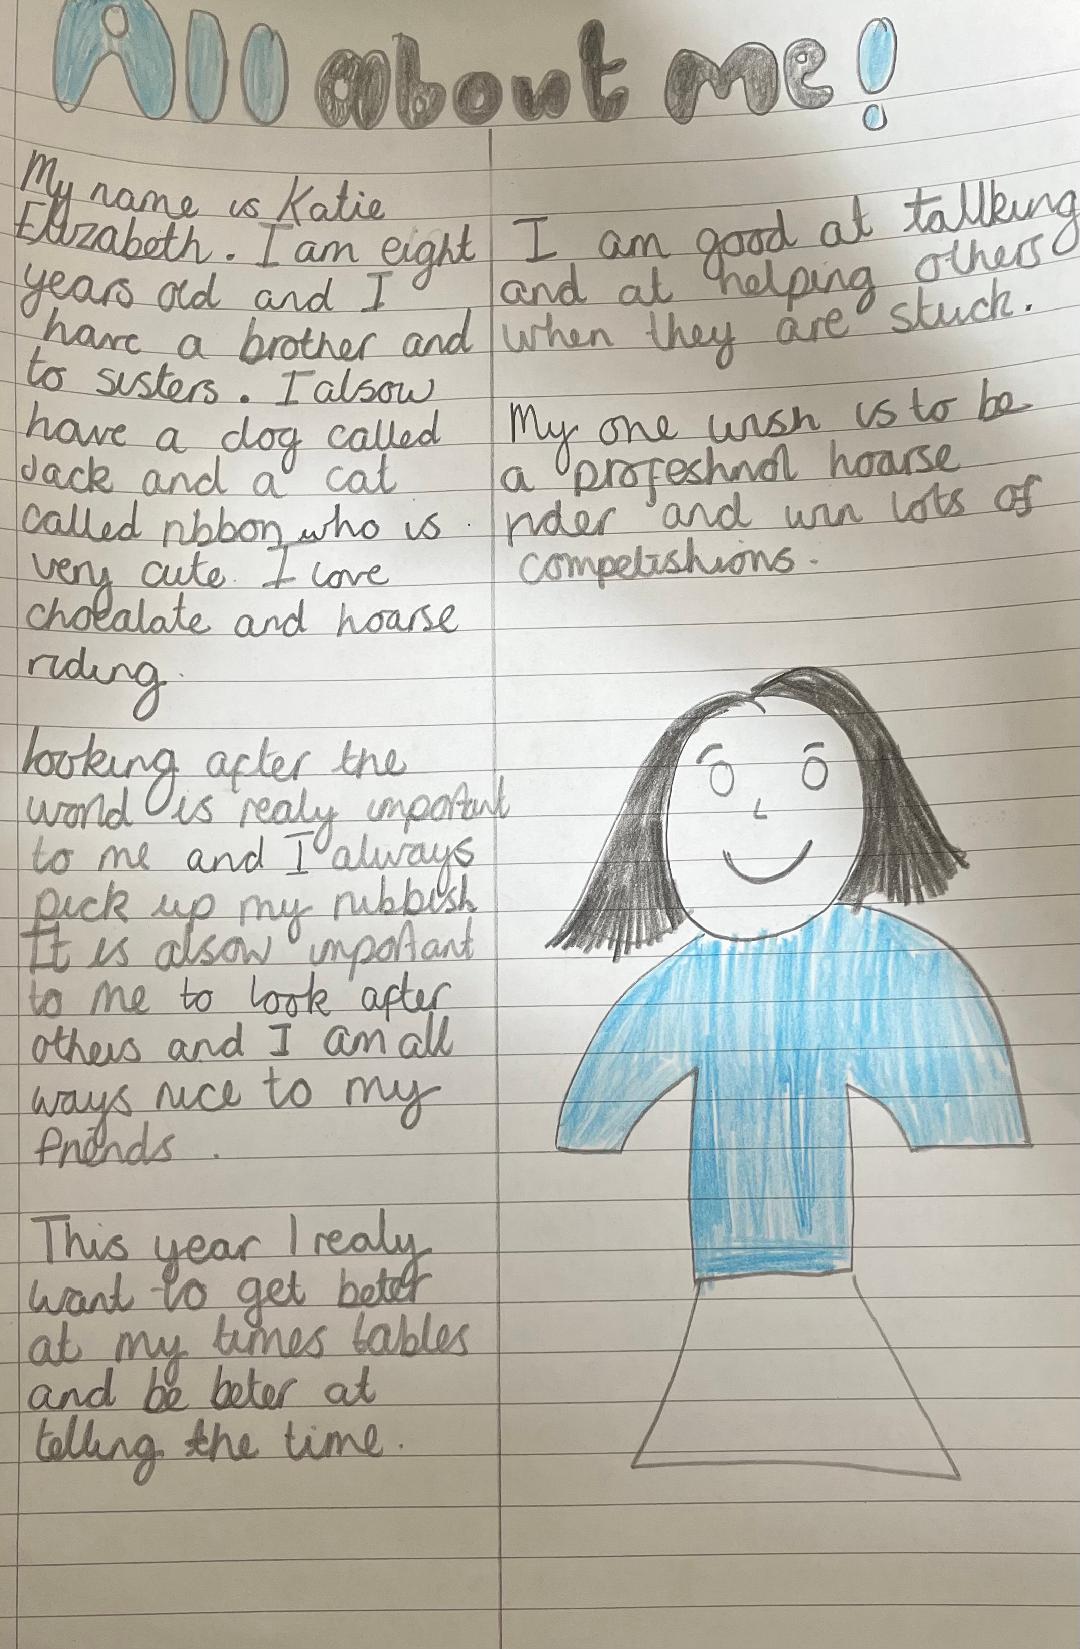 All about me!
My name is Katie
Elizabeth. I am eight
years old and I
have a brother and
to sisters. I alsow
have a dog called
Jack and a cat
called ribbon who is
very cute. I love
chocalate and hoarse
riding.
looking after the
world is realy important
to me and I always
pick up my rubbish
It is alsow important
to me to look after
others and I am all
ways nice to my
friends.
This year I realy
want to get beter
at my times tables
and be beter at
telling the time.
I am good at tallking
and at helping others
when they are stuck.
My one wish is to be
a profeshnol hoarse
rider and win lots of
competishions.